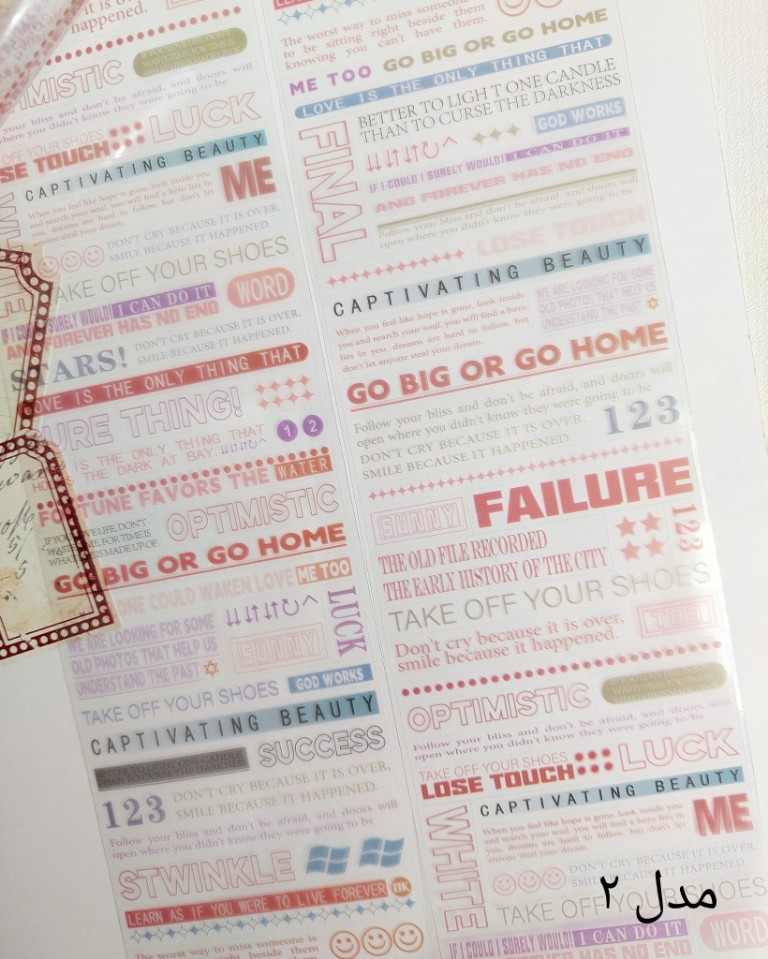 happened.
OPTIMISTIC
your bliss and don't be afraid, and doors will
where you didn't know they were going to be
OFF YOUR SHOES
LUCK
SE TOUCH
CAPTIVATING BEAUTY
When you feel like hope is gone, look inside you
and search your soul, you will find a hero lies in
you, dreams are hard to follow, but don't let
anyone steal your dream.
ME
DON'T CRY BECAUSE IT IS OVER,
SMILE BECAUSE IT HAPPENED.
TAKE OFF YOUR SHOES
IF I COULD I SURELY WOULD!
I CAN DO IT
WORD
AND FOREVER HAS NO END
STARS!
DON'T CRY BECAUSE IT IS OVER,
SMILE BECAUSE IT HAPPENED.
LOVE IS THE ONLY THING THAT
URE THING!
IS THE ONLY THING THAT
THE DARK AT BAY.
1 2
FORTUNE FAVORS THE
WATER
IF YOU LOVE LIFE, DON'T
WASTE TIME, FOR TIME IS
WHAT LIFE IS MADE UP OF
OPTIMISTIC
GO BIG OR GO HOME
ONE COULD WAKEN LOVE
ME TOO
WE ARE LOOKING FOR SOME
OLD PHOTOS THAT HELP US
UNDERSTAND THE PAST
SUNNY
LUCK
TAKE OFF YOUR SHOES
GOD WORKS
CAPTIVATING BEAUTY
BETTER TO LIGHT ONE CANDLE
THAN TO CURSE THE DARKNESS
SUCCESS
123
DON'T CRY BECAUSE IT IS OVER,
SMILE BECAUSE IT HAPPENED.
Follow your bliss and don't be afraid, and doors will
open where you didn't know they were going to be
STWINKLE
LEARN AS IF YOU WERE TO LIVE FOREVER
The worst way to miss someone is
to be sitting right beside them
The worst way to miss someone is
to be sitting right beside them
knowing you can't have them.
ME TOO
GO BIG OR GO HOME
LOVE IS THE ONLY THING THAT
FINAL
BETTER TO LIGH T ONE CANDLE
THAN TO CURSE THE DARKNESS
GOD WORKS
IF I COULD I SURELY WOULD!
I CAN DO IT
AND FOREVER HAS NO END
Follow your bliss and don't be afraid, and doors will
open where you didn't know they were going to be
LOSE TOUCH
CAPTIVATING BEAUTY
When you feel like hope is gone, look inside
you and search your soul, you will find a hero
lies in you, dreams are hard to follow, but
don't let anyone steal your dream.
WE ARE LOOKING FOR SOME
OLD PHOTOS THAT HELP US
UNDERSTAND THE PAST
GO BIG OR GO HOME
Follow your bliss and don't be afraid, and doors will
open where you didn't know they were going to be
DON'T CRY BECAUSE IT IS OVER,
SMILE BECAUSE IT HAPPENED.
123
SUNNY
FAILURE
THE OLD FILE RECORDED
THE EARLY HISTORY OF THE CITY
123
TAKE OFF YOUR SHOES
Don't cry because it is over,
smile because it happened.
TOO
OPTIMISTIC
Follow your bliss and don't be afraid, and doors will
open where you didn't know they were going to be
TAKE OFF YOUR SHOES
LUCK
LOSE TOUCH
WHITE
CAPTIVATING BEAUTY
When you feel like hope is gone, look inside you
and search your soul, you will find a hero lies in
you, dreams are hard to follow, but don't let
anyone steal your dream.
ME
DON'T CRY BECAUSE IT IS OVER,
SMILE BECAUSE IT HAPPENED.
TAKE OFF YOUR SHOES
IF I COULD I SURELY WOULD!
I CAN DO IT
WORD
AND FOREVER HAS NO END
مدل ۲